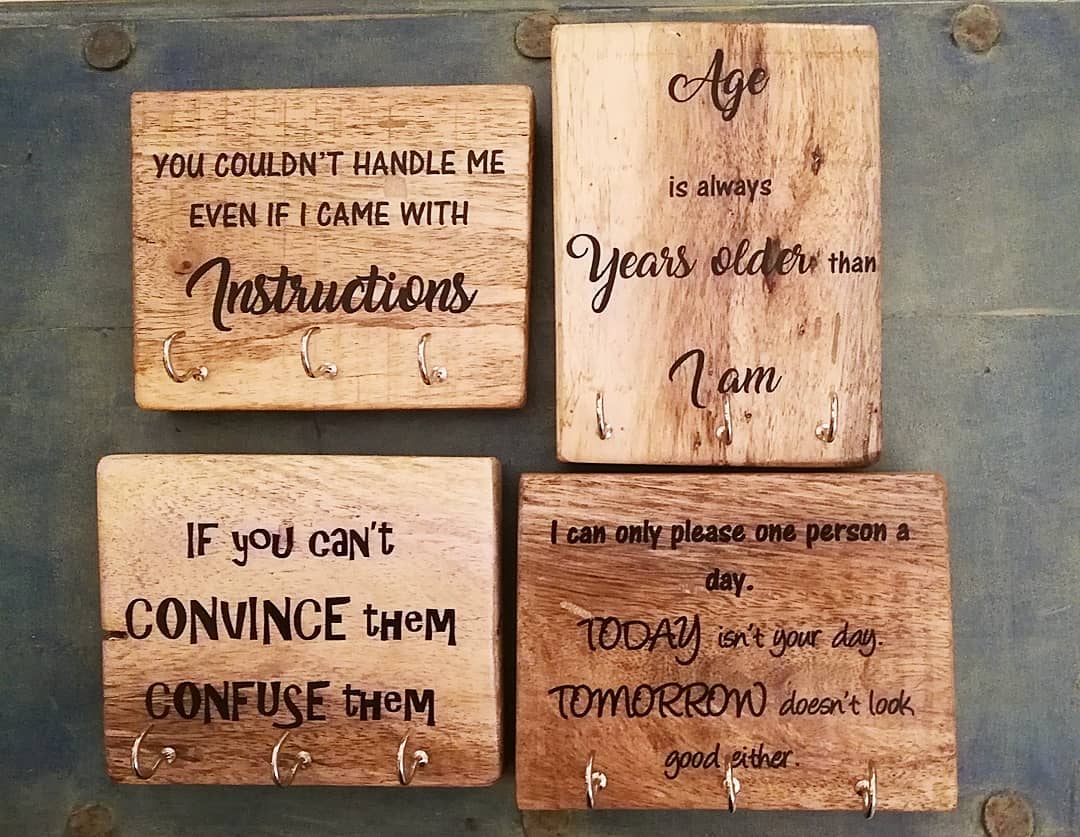 YOU COULDN'T HANDLE ME
EVEN IF I CAME WITH
Instructions
Age
is always
Years older than
I am
IF yoU caN't
CONVINCE tHeM
CONFUSE tHeM
I can only please one person a
day.
TODAY isn't your day.
TOMORROW doesn't look
good either.